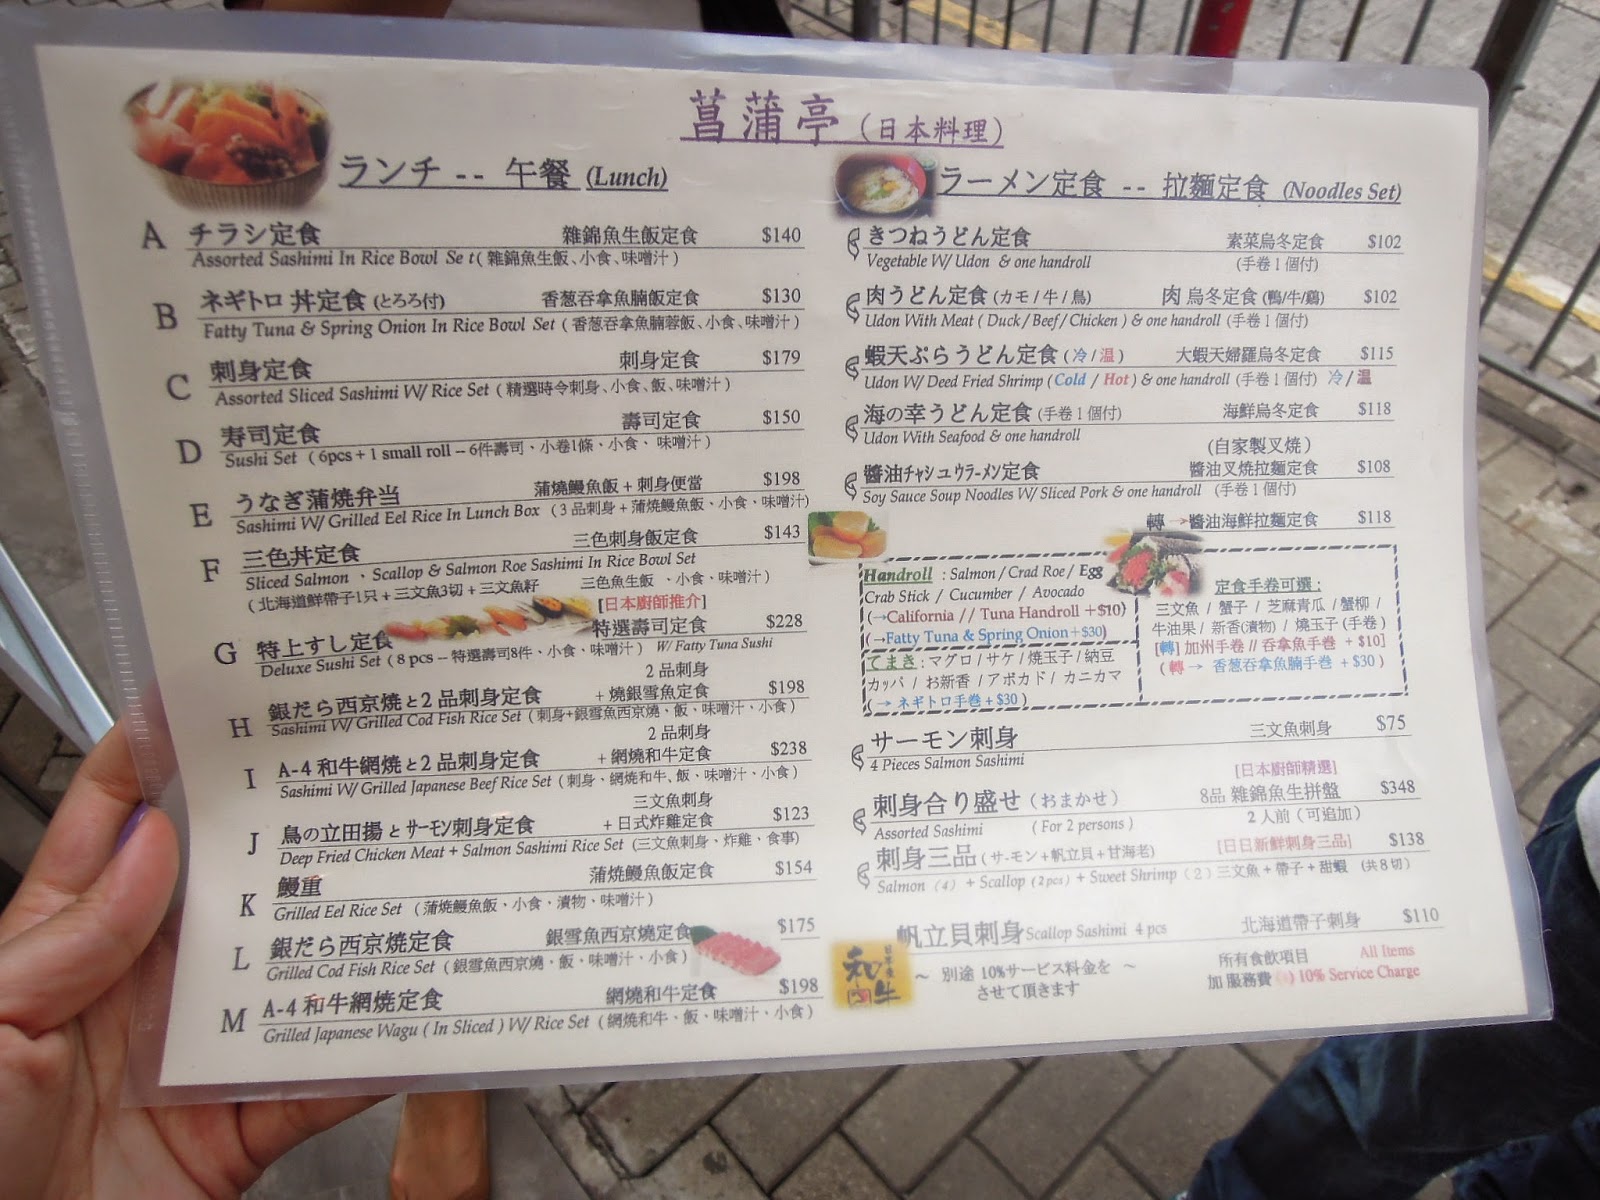 菖蒲亭 (日本料理)
ランチ -- 午餐 (Lunch)
A チラシ定食 雜錦魚生飯定食 $140
Assorted Sashimi In Rice Bowl Set ( 雜錦魚生飯、小食、味噌汁 )
B ネギトロ 丼定食 (とろろ付) 香葱吞拿魚腩飯定食 $130
Fatty Tuna & Spring Onion In Rice Bowl Set ( 香葱吞拿魚腩蓉飯、小食、味噌汁 )
C 刺身定食 刺身定食 $179
Assorted Sliced Sashimi W/ Rice Set ( 精選時令刺身、小食、飯、味噌汁 )
D 寿司定食 壽司定食 $150
Sushi Set ( 6pcs + 1 small roll -- 6件壽司、小卷1條、小食、味噌汁 )
E うなぎ蒲焼弁当 蒲燒鰻魚飯 + 刺身便當 $198
Sashimi W/ Grilled Eel Rice In Lunch Box ( 3 品刺身 + 蒲燒鰻魚飯、小食、味噌汁)
F 三色丼定食 三色刺身飯定食 $143
Sliced Salmon 、Scallop & Salmon Roe Sashimi In Rice Bowl Set
( 北海道鮮帶子1只 + 三文魚3切 + 三文魚籽 三色魚生飯 、小食、味噌汁 )
[日本廚師推介]
G 特上すし定食 特選壽司定食 $228
Deluxe Sushi Set ( 8 pcs -- 特選壽司8件、小食、味噌汁 ) W/ Fatty Tuna Sushi
2 品刺身
H 銀だら西京焼と2 品刺身定食 + 燒銀雪魚定食 $198
Sashimi W/ Grilled Cod Fish Rice Set ( 刺身+銀雪魚西京燒、飯、味噌汁、小食 )
2 品刺身
I A-4 和牛網焼と2 品刺身定食 + 網燒和牛定食 $238
Sashimi W/ Grilled Japanese Beef Rice Set ( 刺身、網燒和牛、飯、味噌汁、小食 )
三文魚刺身
J 鳥の立田揚とサーモン刺身定食 + 日式炸雞定食 $123
Deep Fried Chicken Meat + Salmon Sashimi Rice Set (三文魚刺身、炸雞、食事)
K 鰻重 蒲燒鰻魚飯定食 $154
Grilled Eel Rice Set ( 蒲燒鰻魚飯、小食、漬物、味噌汁 )
L 銀だら西京焼定食 銀雪魚西京燒定食 $175
Grilled Cod Fish Rice Set ( 銀雪魚西京燒、飯、味噌汁、小食 )
M A-4 和牛網焼定食 網燒和牛定食 $198
Grilled Japanese Wagu ( In Sliced ) W/ Rice Set ( 網燒和牛、飯、味噌汁、小食 )
ラーメン定食 -- 拉麵定食 (Noodles Set)
きつねうどん定食 素菜烏冬定食 $102
Vegetable W/ Udon & one handroll (手卷1個付)
肉うどん定食 (カモ / 牛 / 鳥) 肉 烏冬定食 (鴨/牛/鷄) $102
Udon With Meat ( Duck / Beef / Chicken ) & one handroll (手卷1個付)
蝦天ぷらうどん定食 ( 冷 / 温 ) 大蝦天婦羅烏冬定食 $115
Udon W/ Deed Fried Shrimp ( Cold / Hot ) & one handroll (手卷1個付) 冷 / 温
海の幸うどん定食 (手卷1個付) 海鮮烏冬定食 $118
Udon With Seafood & one handroll
(自家製叉燒)
醬油チャシュウラーメン定食 醬油叉燒拉麵定食 $108
Soy Sauce Soup Noodles W/ Sliced Pork & one handroll (手卷1個付)
轉 → 醬油海鮮拉麵定食 $118
Handroll : Salmon / Crad Roe / Egg
Crab Stick / Cucumber / Avocado
(→California // Tuna Handroll +$10)
(→Fatty Tuna & Spring Onion+$30)
てまき : マグロ / サケ / 焼玉子 / 納豆
カッパ / お新香 / アボカド / カニカマ
( → ネギトロ手卷 + $30 )
定食手卷可選 :
三文魚 / 蟹子 / 芝麻青瓜 / 蟹柳 /
牛油果 / 新香(漬物) / 燒玉子 (手卷)
[轉] 加州手卷 // 吞拿魚手卷 + $10]
( 轉 → 香葱吞拿魚腩手卷 + $30 )
サーモン刺身 三文魚刺身 $75
4 Pieces Salmon Sashimi
[日本廚師精選]
刺身合り盛せ (おまかせ) 8品 雜錦魚生拼盤 $348
Assorted Sashimi ( For 2 persons ) 2 人前 (可追加)
刺身三品 ( サーモン + 帆立貝 + 甘海老) [日日新鮮刺身三品] $138
Salmon (4) + Scallop (2pcs) + Sweet Shrimp (2) 三文魚 + 帶子 + 甜蝦 (共8切)
帆立貝刺身 Scallop Sashimi 4 pcs 北海道帶子刺身 $110
和牛
~ 別途 10%サービス料金を ~
させて頂きます
所有食飲項目 All Items
加 服務費 10% Service Charge